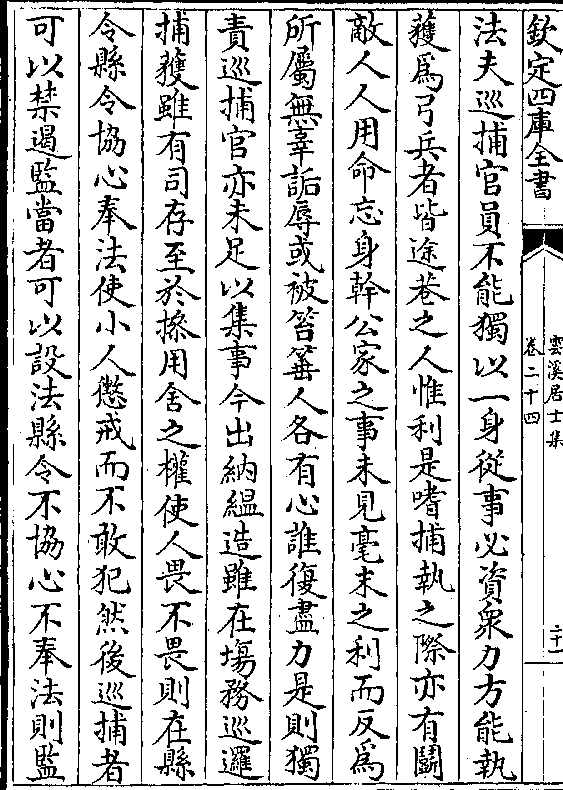 欽定四庫全書
雲溪居士集
卷二十四
二十
法夫巡捕官員不能獨以一身從事必資衆力方能執
獲爲弓兵者皆途巷之人惟利是嗜捕執之際亦有鬭
敵人人用命忘身幹公家之事未見毫末之利而反爲
所屬無辜詬辱或被笞箠人各有心誰復盡力是則獨
責巡捕官亦未足以集事今出納緼造雖在塲務巡邏
捕獲雖有司存至於操用舍之權使人畏不畏則在縣
令縣令協心奉法使小人懲戒而不敢犯然後巡捕者
可以禁遏監當者可以設法縣令不協心不奉法則監